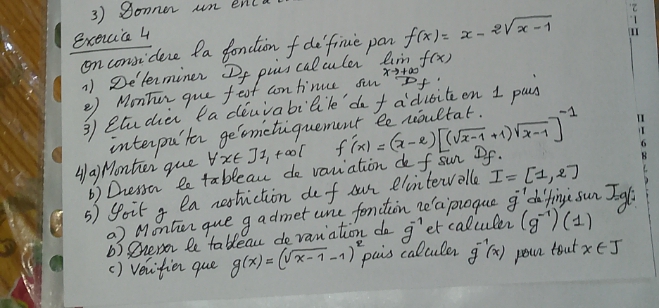 3) Donner un
Exercice 4
on considère la fonction f définie par f(x) = x - 2√(x-1)
1) Déterminer Df puis calculer lim f(x) x→+∞
2) Montrer que f est continue sur Df.
3) Etudier la dérivabilité de f à droite en 1 puis
interpréter géométriquement le résultat.
4) a) Montrer que ∀x∈]1,+∞[ f'(x) = (x-2)[(√(x-1)+1)√(x-1)]⁻¹
b) Dresser le tableau de variation de f sur Df.
5) Soit g la restriction de f sur l'intervalle I = [1,2]
a) Montrer que g admet une fonction réciproque g⁻¹ définie sur J
b) Dresser le tableau de variation de g⁻¹ et calculer (g⁻¹)(1)
c) Vérifier que g(x) = (√(x-1) - 1)² puis calculer g⁻¹(x) pour tout x∈J